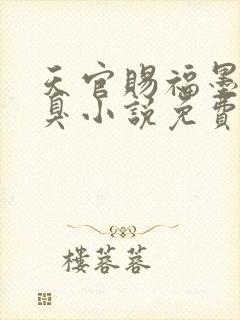 天官賜福墨
臭小說免費
樓蓉蓉